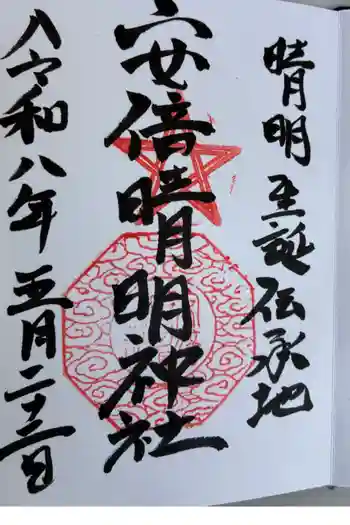 晴明生誕伝承地
安倍晴明神社
令和八年五月二十三日